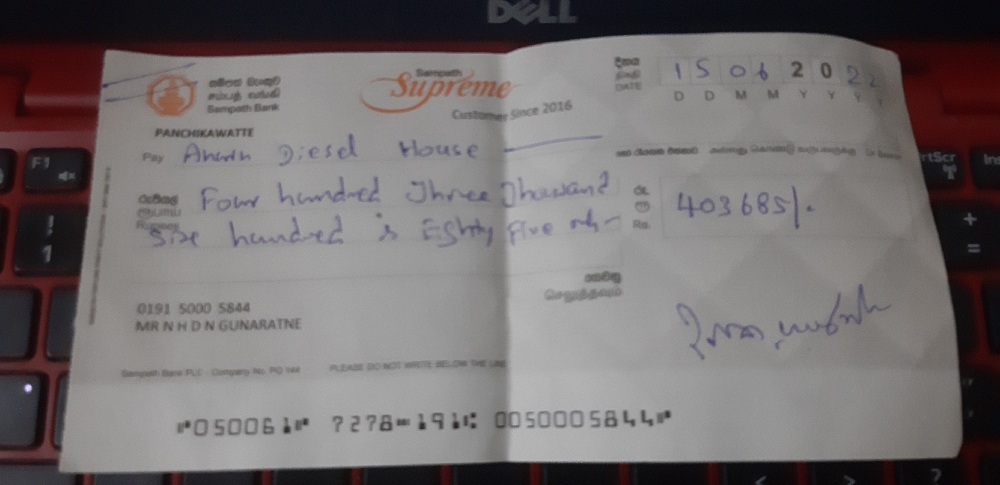 DELL
සම්පත් බැංකුව
சம்பத் வங்கி
Sampath Bank
Sampath
Supreme
Customer Since 2016
දිනය
திகதி
DATE
15 06 2022
D D M M Y Y Y Y
PANCHIKAWATTE
Pay Diesel House
රුපියල්
ரூபாய்
Rupees
Four hundred Three Thousand
Six hundred & Eighty Five only
රු.
ரூ
Rs.
403685/.
ගෙවනු
செலுத்தவும்
0191 5000 5844
MR N H D N GUNARATNE
Sampath Bank PLC - Company No. PQ 144
PLEASE DO NOT WRITE BELOW THE LINE
⑈050061⑈ 7278⑉191⑆ 0050005844⑈
F1
!
1
PrtScr
Ins
+
=
?